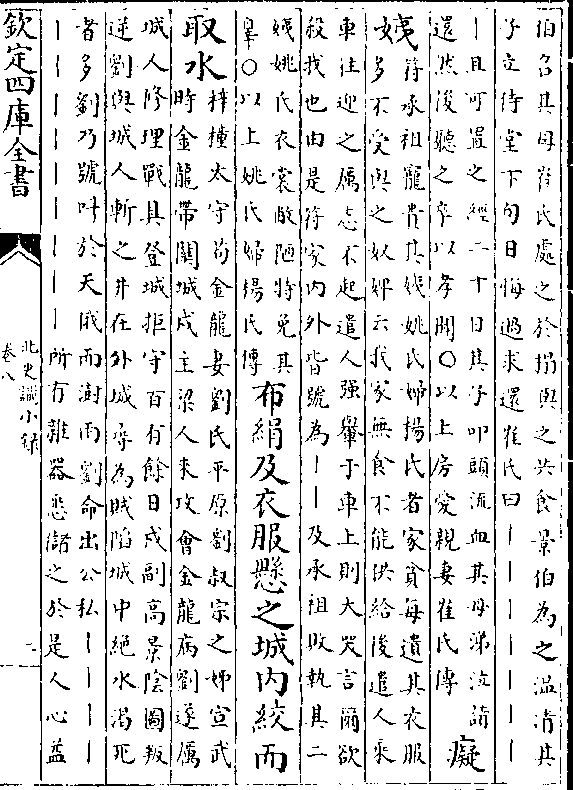 伯召其母崔氏處之於榻與之共食景伯為之温凊其
子立侍堂下旬日悔過求還崔氏曰丨丨丨丨丨丨丨
丨且可置之經二十日其子叩頭流血其母涕泣請
還然後聽之卒以孝聞○以上房愛親妻崔氏傳 癡
姨 符承祖寵貴其姨姚氏婦楊氏者家貧每遺其衣服
多不受與之奴婢云我家無食不能供給後遣人乘
車往迎之厲志不起遣人强轝于車上則大哭言爾欲
殺我也由是符家内外皆號為丨丨及承祖敗執其二
姨姚氏衣裳敝陋特免其
辠○以上姚氏婦楊氏傳 布絹及衣服懸之城内絞而
取水 梓橦太守苟金龍妻劉氏平原劉叔宗之姊宣武
時金龍帶關城戍主梁人來攻會金龍病劉遂厲
城人修理戰具登城拒守百有餘日戍副高景陰圖叛
逆劉與城人斬之井在外城尋為賊陷城中絶水渴死
者多劉乃號呌於天俄而澍雨劉命出公私丨丨丨丨丨
丨丨丨丨丨丨丨丨所有雜器悉儲之於是人心益
欽定四庫全書
北史識小録
卷八
二